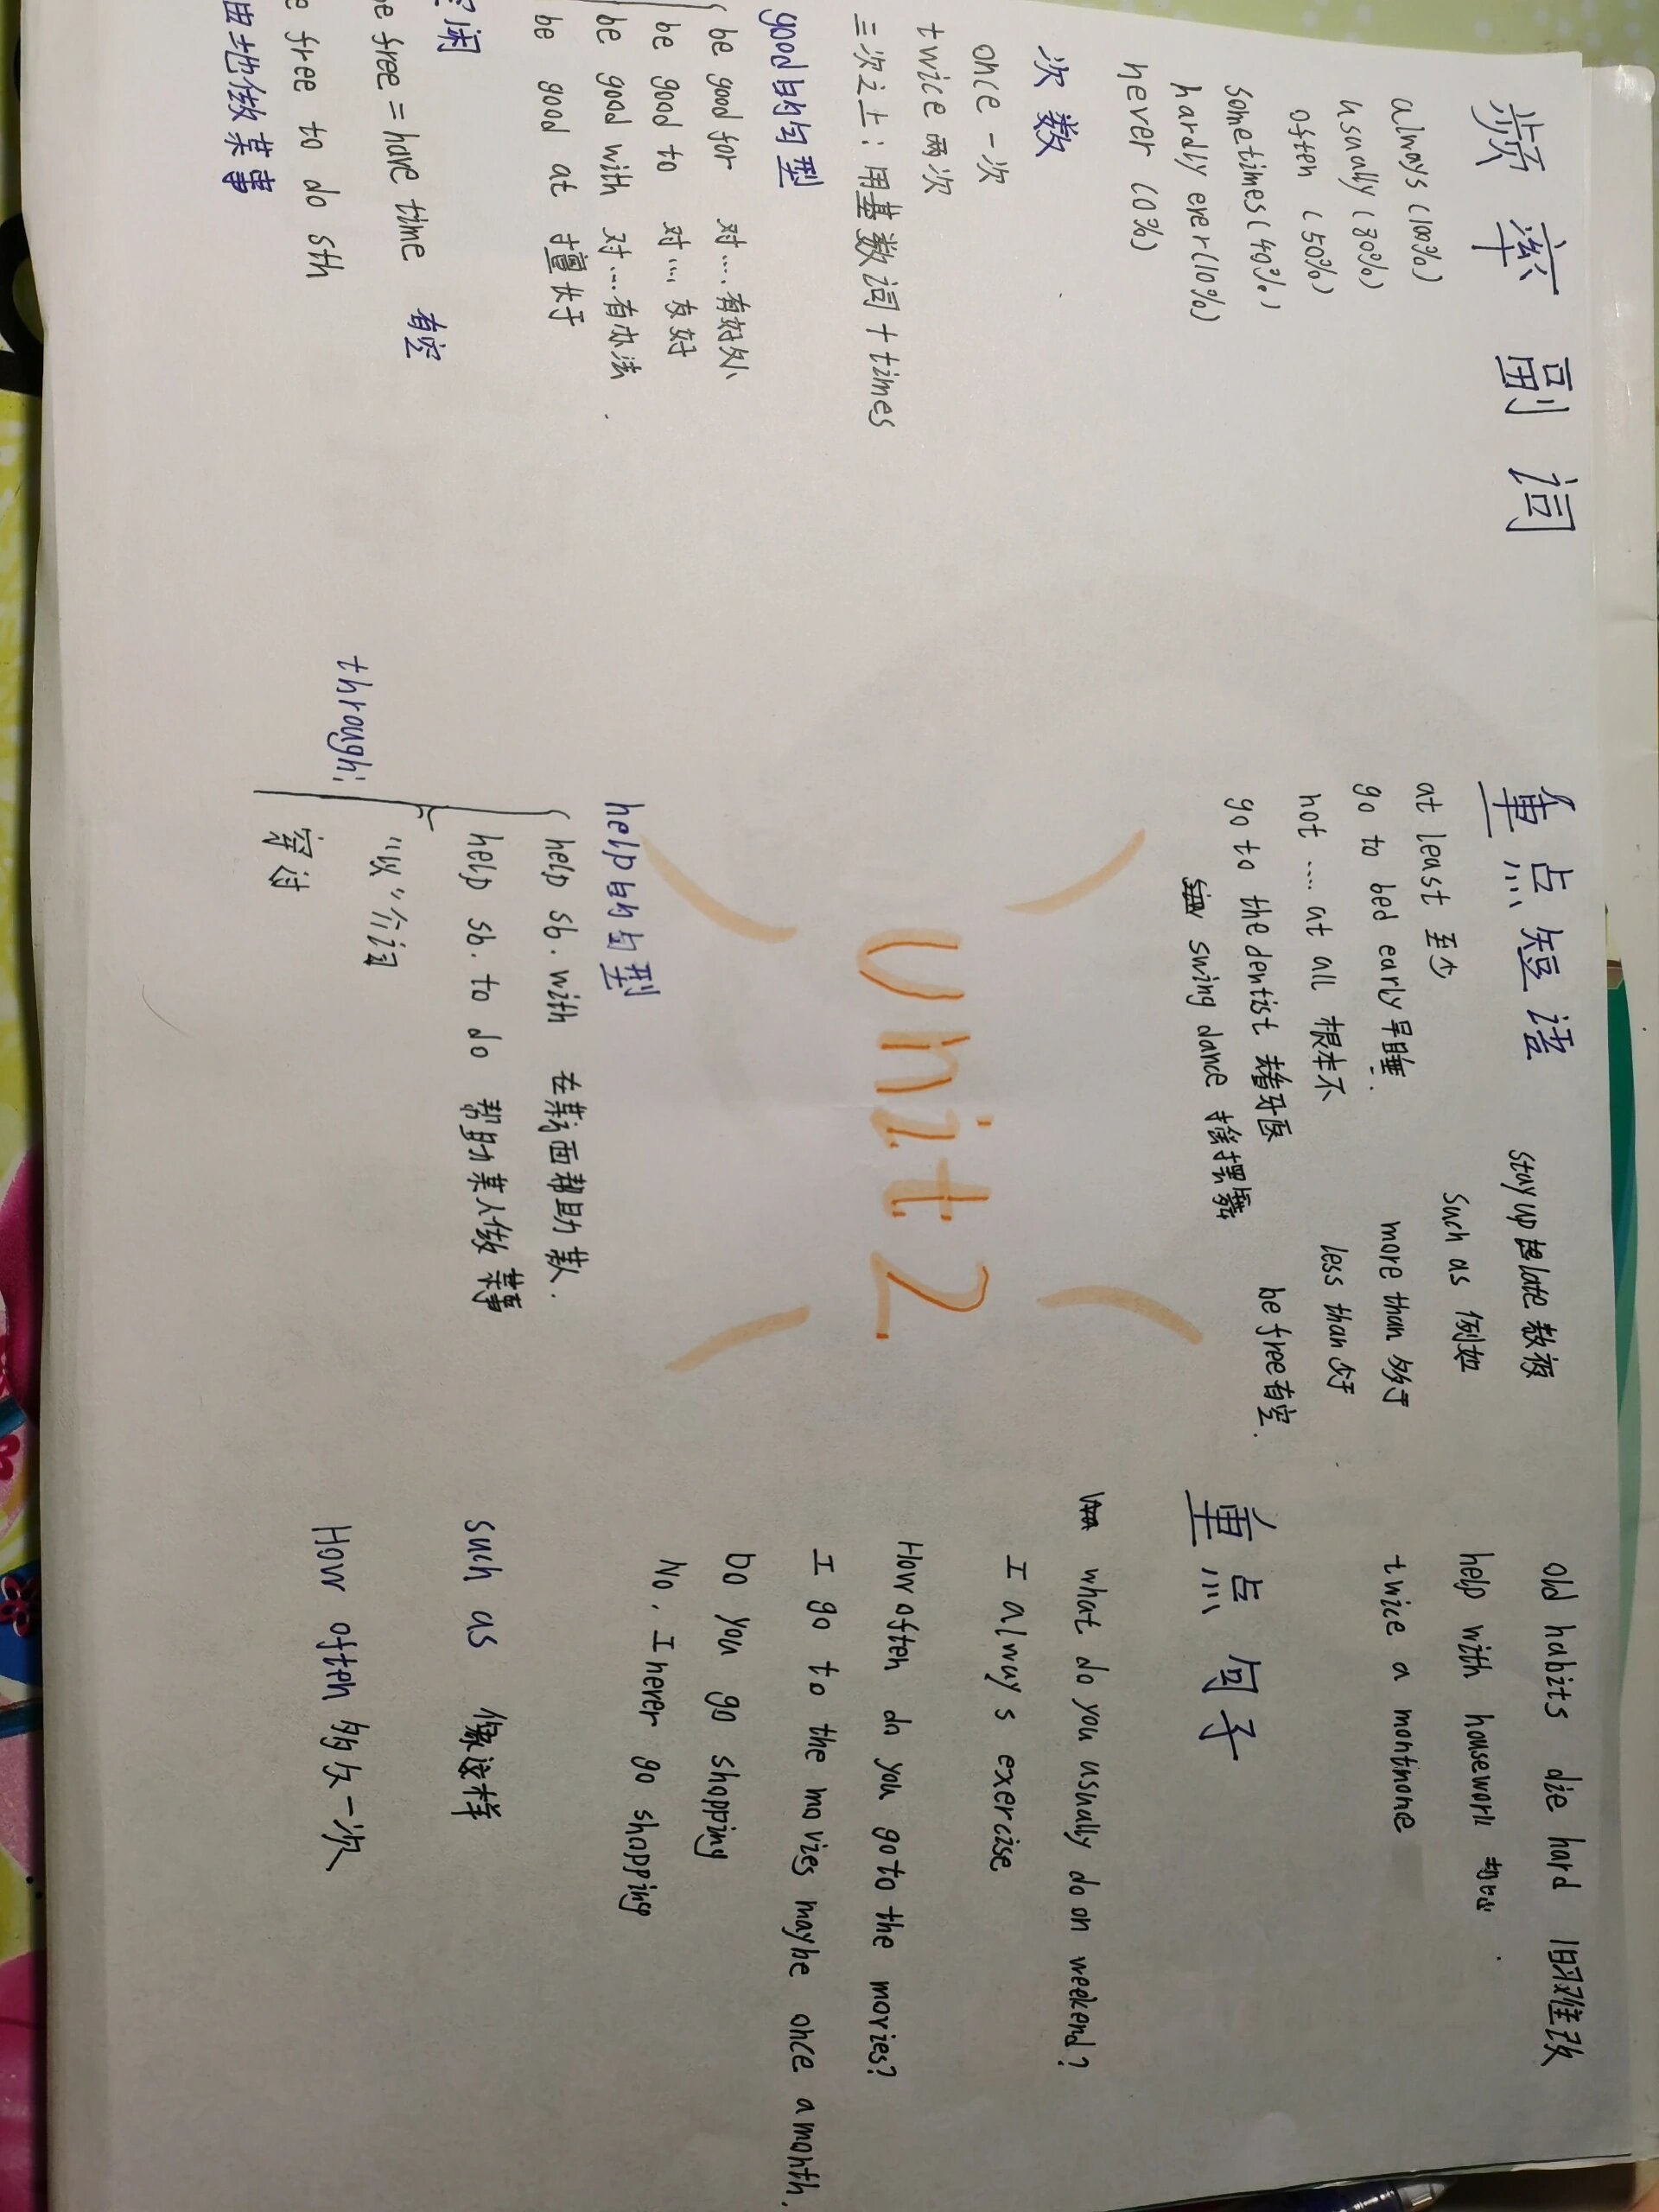 频率副词
always (100%)
usually (80%)
often (50%)
sometimes (40%)
hardly ever (10%)
never (0%)
次数
once 一次
twice 两次
三次之上:用基数词 + times
good的句型
be good for 对...有好处
be good to 对...友好
be good with 对...有办法.
be good at 擅长于
闲
e free = have time 有空
e free to do sth
由地做某事
重点短语
at least 至少
go to bed early 早睡.
not .... at all 根本不
go to the dentist 看牙医
swing dance 摇摆舞
stay up late 熬夜
such as 例如
more than 多于
less than 少于
be free 有空.
old habits die hard 旧习难改
help with housework
twice a month
Unit 2
help的句型
help sb. with 在某方面帮助某人.
help sb. to do 帮助某人做某事
through:
"以"介词
穿过
重点句子
what do you usually do on weekend?
I always exercise
How often do you go to the movies?
I go to the movies maybe once a month.
Do you go shopping
No, I never go shopping
such as 像这样
How often 多久一次